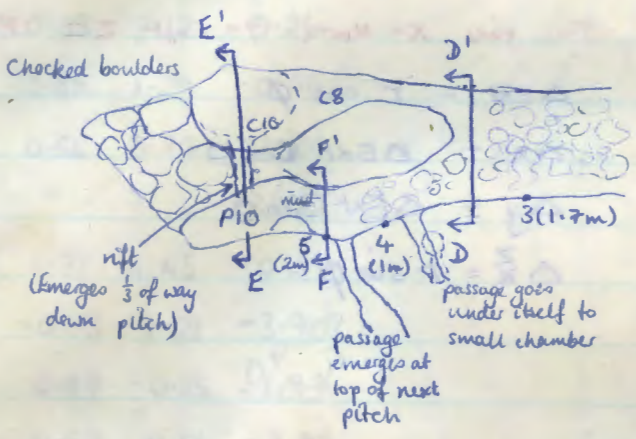 E'
D'
Checked boulders
C8
C10
F'
mud
P10
3 (1.7m)
5
(2m)
4
(1m)
E
F
D
rift
(Emerges 1/3 of way
down pitch)
passage goes
under itself to
small chamber
passage
emerges at
top of next
pitch